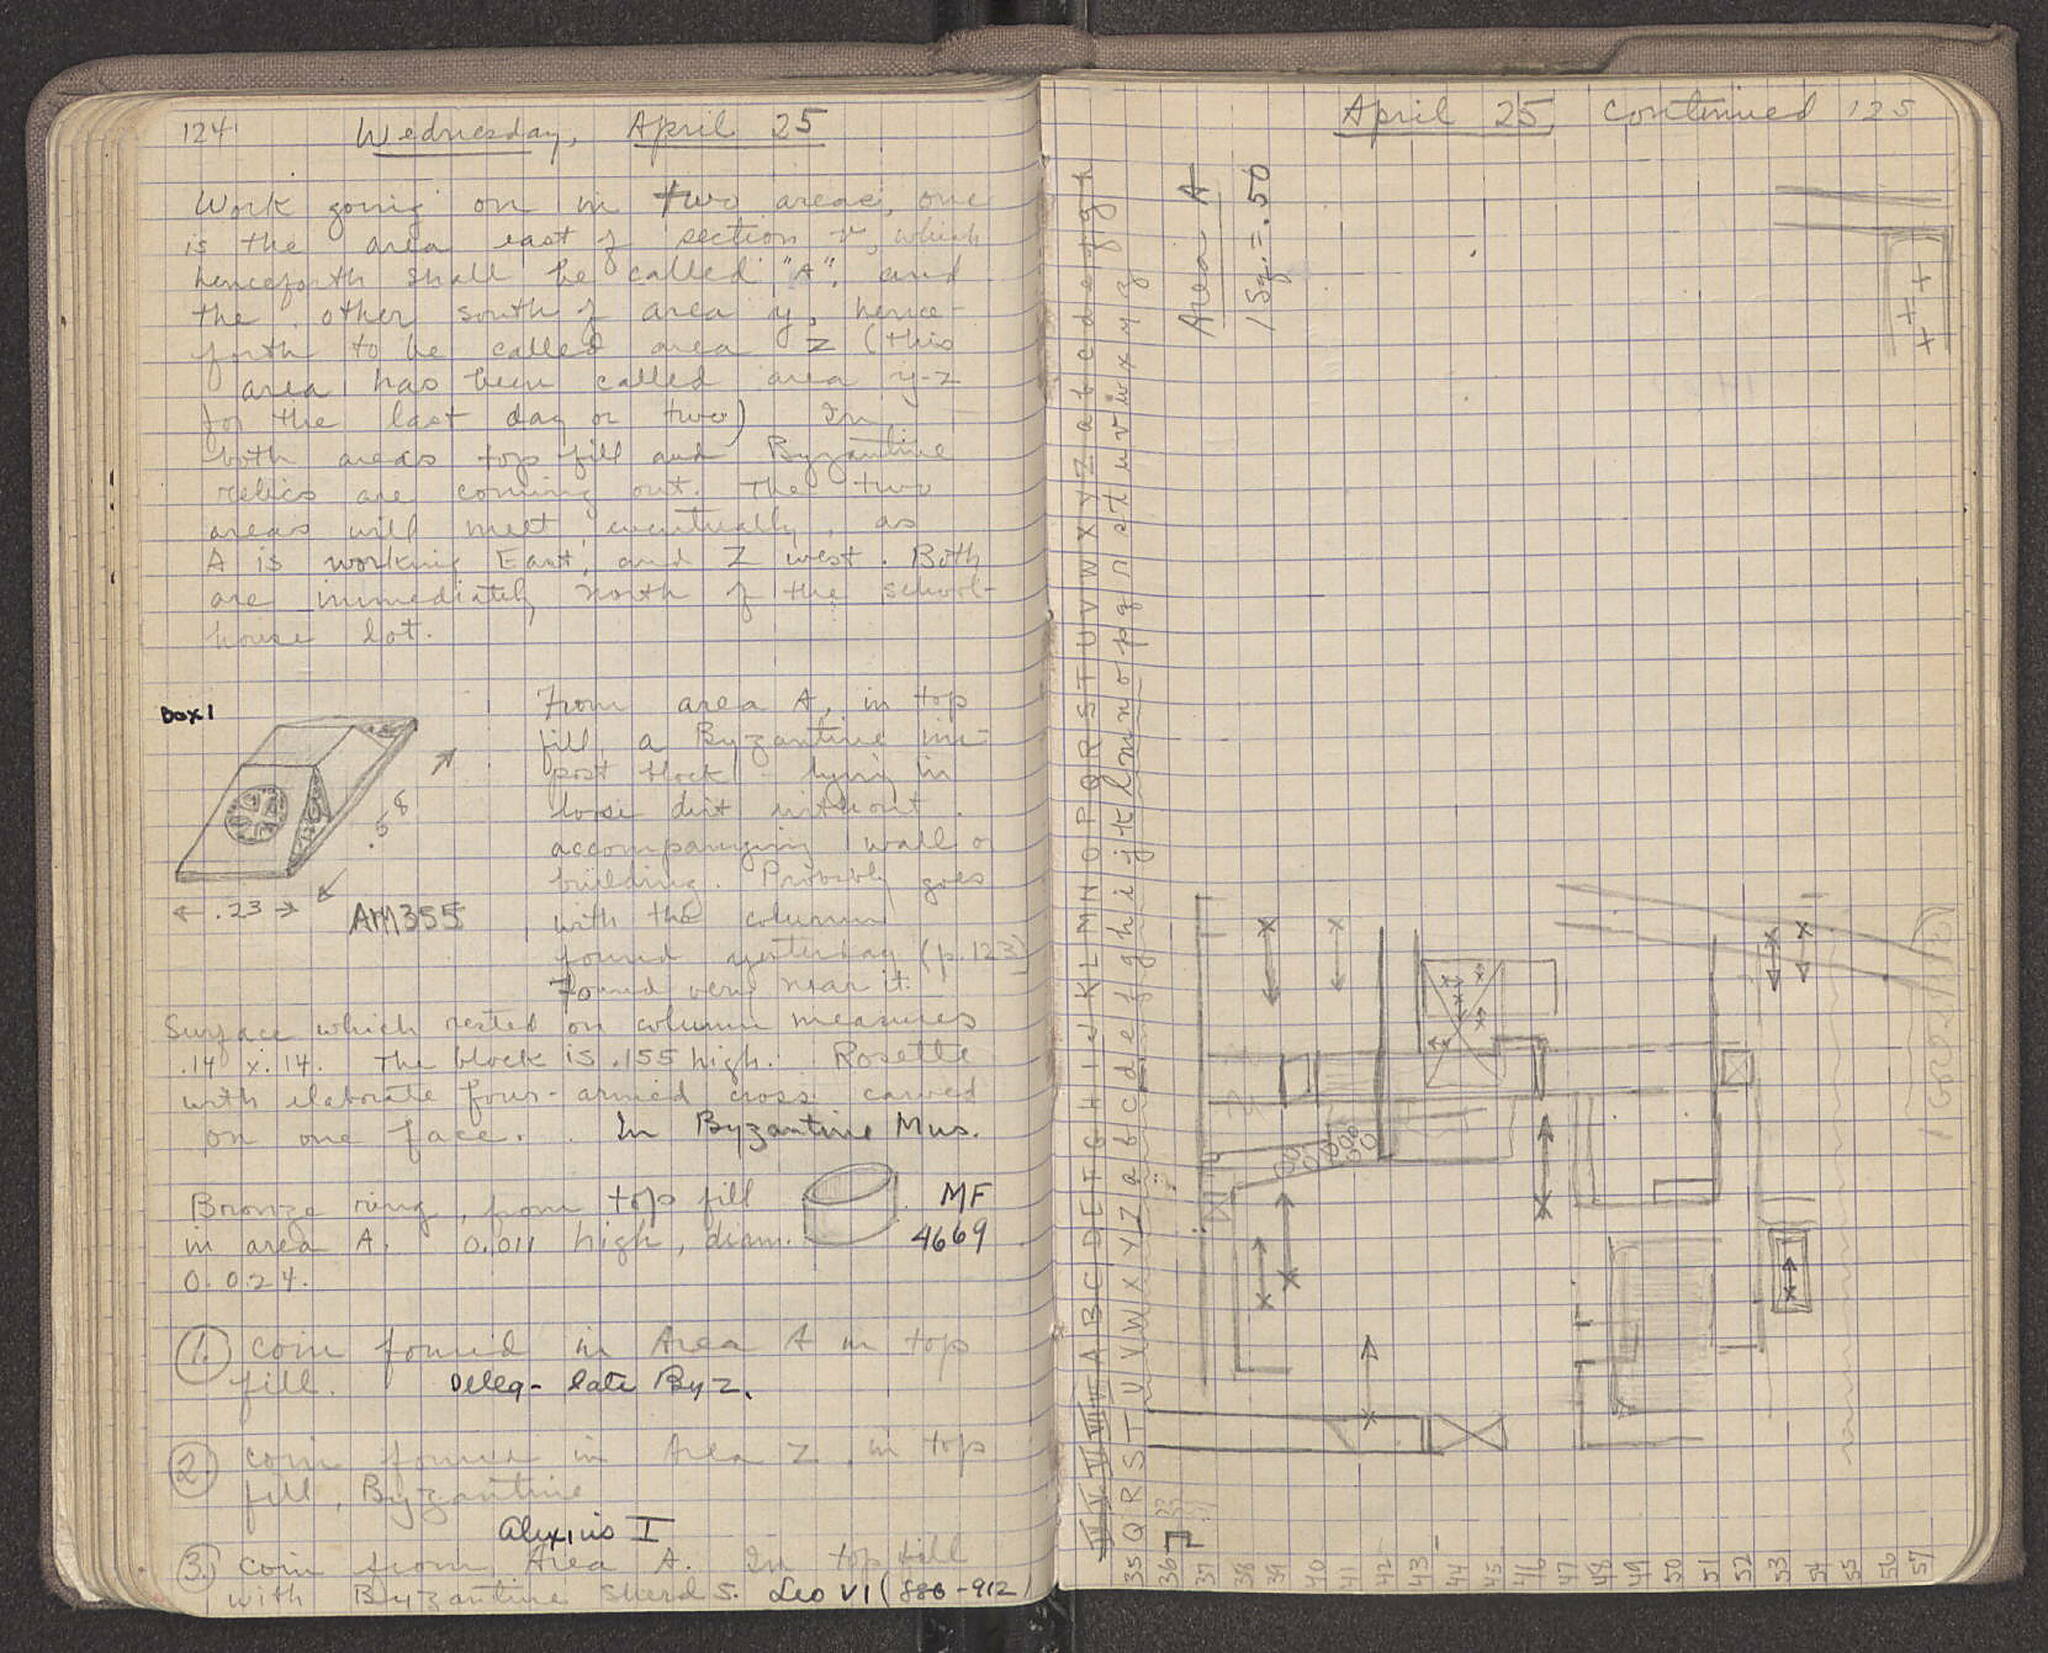 124
Wednesday, April 25
Work going on in two areas, one
is the area east of section v, which
henceforth shall be called "A", and
the other south of area y, hence-
forth to be called area z (this
area has been called area y-z
for the last day or two) In
both areas top fill and Byzantine
relics are coming out. The two
areas will meet eventually, as
A is working East, and Z west. Both
are immediately north of the school-
house lot.
Box 1
From area A, in top
fill, a Byzantine im-
post block - lying in
loose dirt without
accompanying wall or
building. Probably goes
with the column
found yesterday (p. 123)
Found very near it.
.58
.23
AM355
Surface which rested on column measures
.14 x .14. The block is .155 high. Rosette
with elaborate four-armed cross carved
on one face. In Byzantine Mus.
Bronze ring, from top fill
in area A. 0.011 high, diam.
0.024.
MF
4669
1. coin found in Area A in top
fill. Illeg- late Byz.
2. coin found in Area Z in top
fill, Byzantine
Alexius I
3. coin from Area A. In top fill
with Byzantine sherds. Leo VI (886-912)
April 25 continued 125
Area A
1 Sq. = .50
A B C D E F G H I J K L M N O P Q R S T U V W X Y Z a b c d e f g h
Q R S T U V W X Y Z a b c d e f g h i j k l m n o p q r s t u v w x y z
35 36 37 38 39 40 41 42 43 44 45 46 47 48 49 50 51 52 53 54 55 56 57